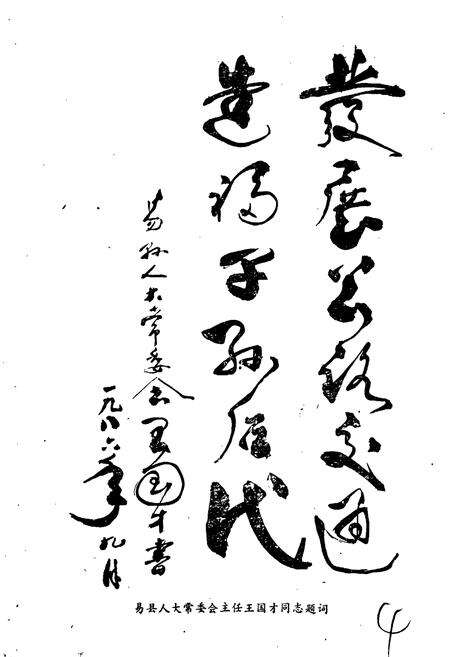 發展公路交通
造福子孙后代
易县人大常委会王国才書
一九八六年九月
易县人大常委会主任王国才同志题词
4